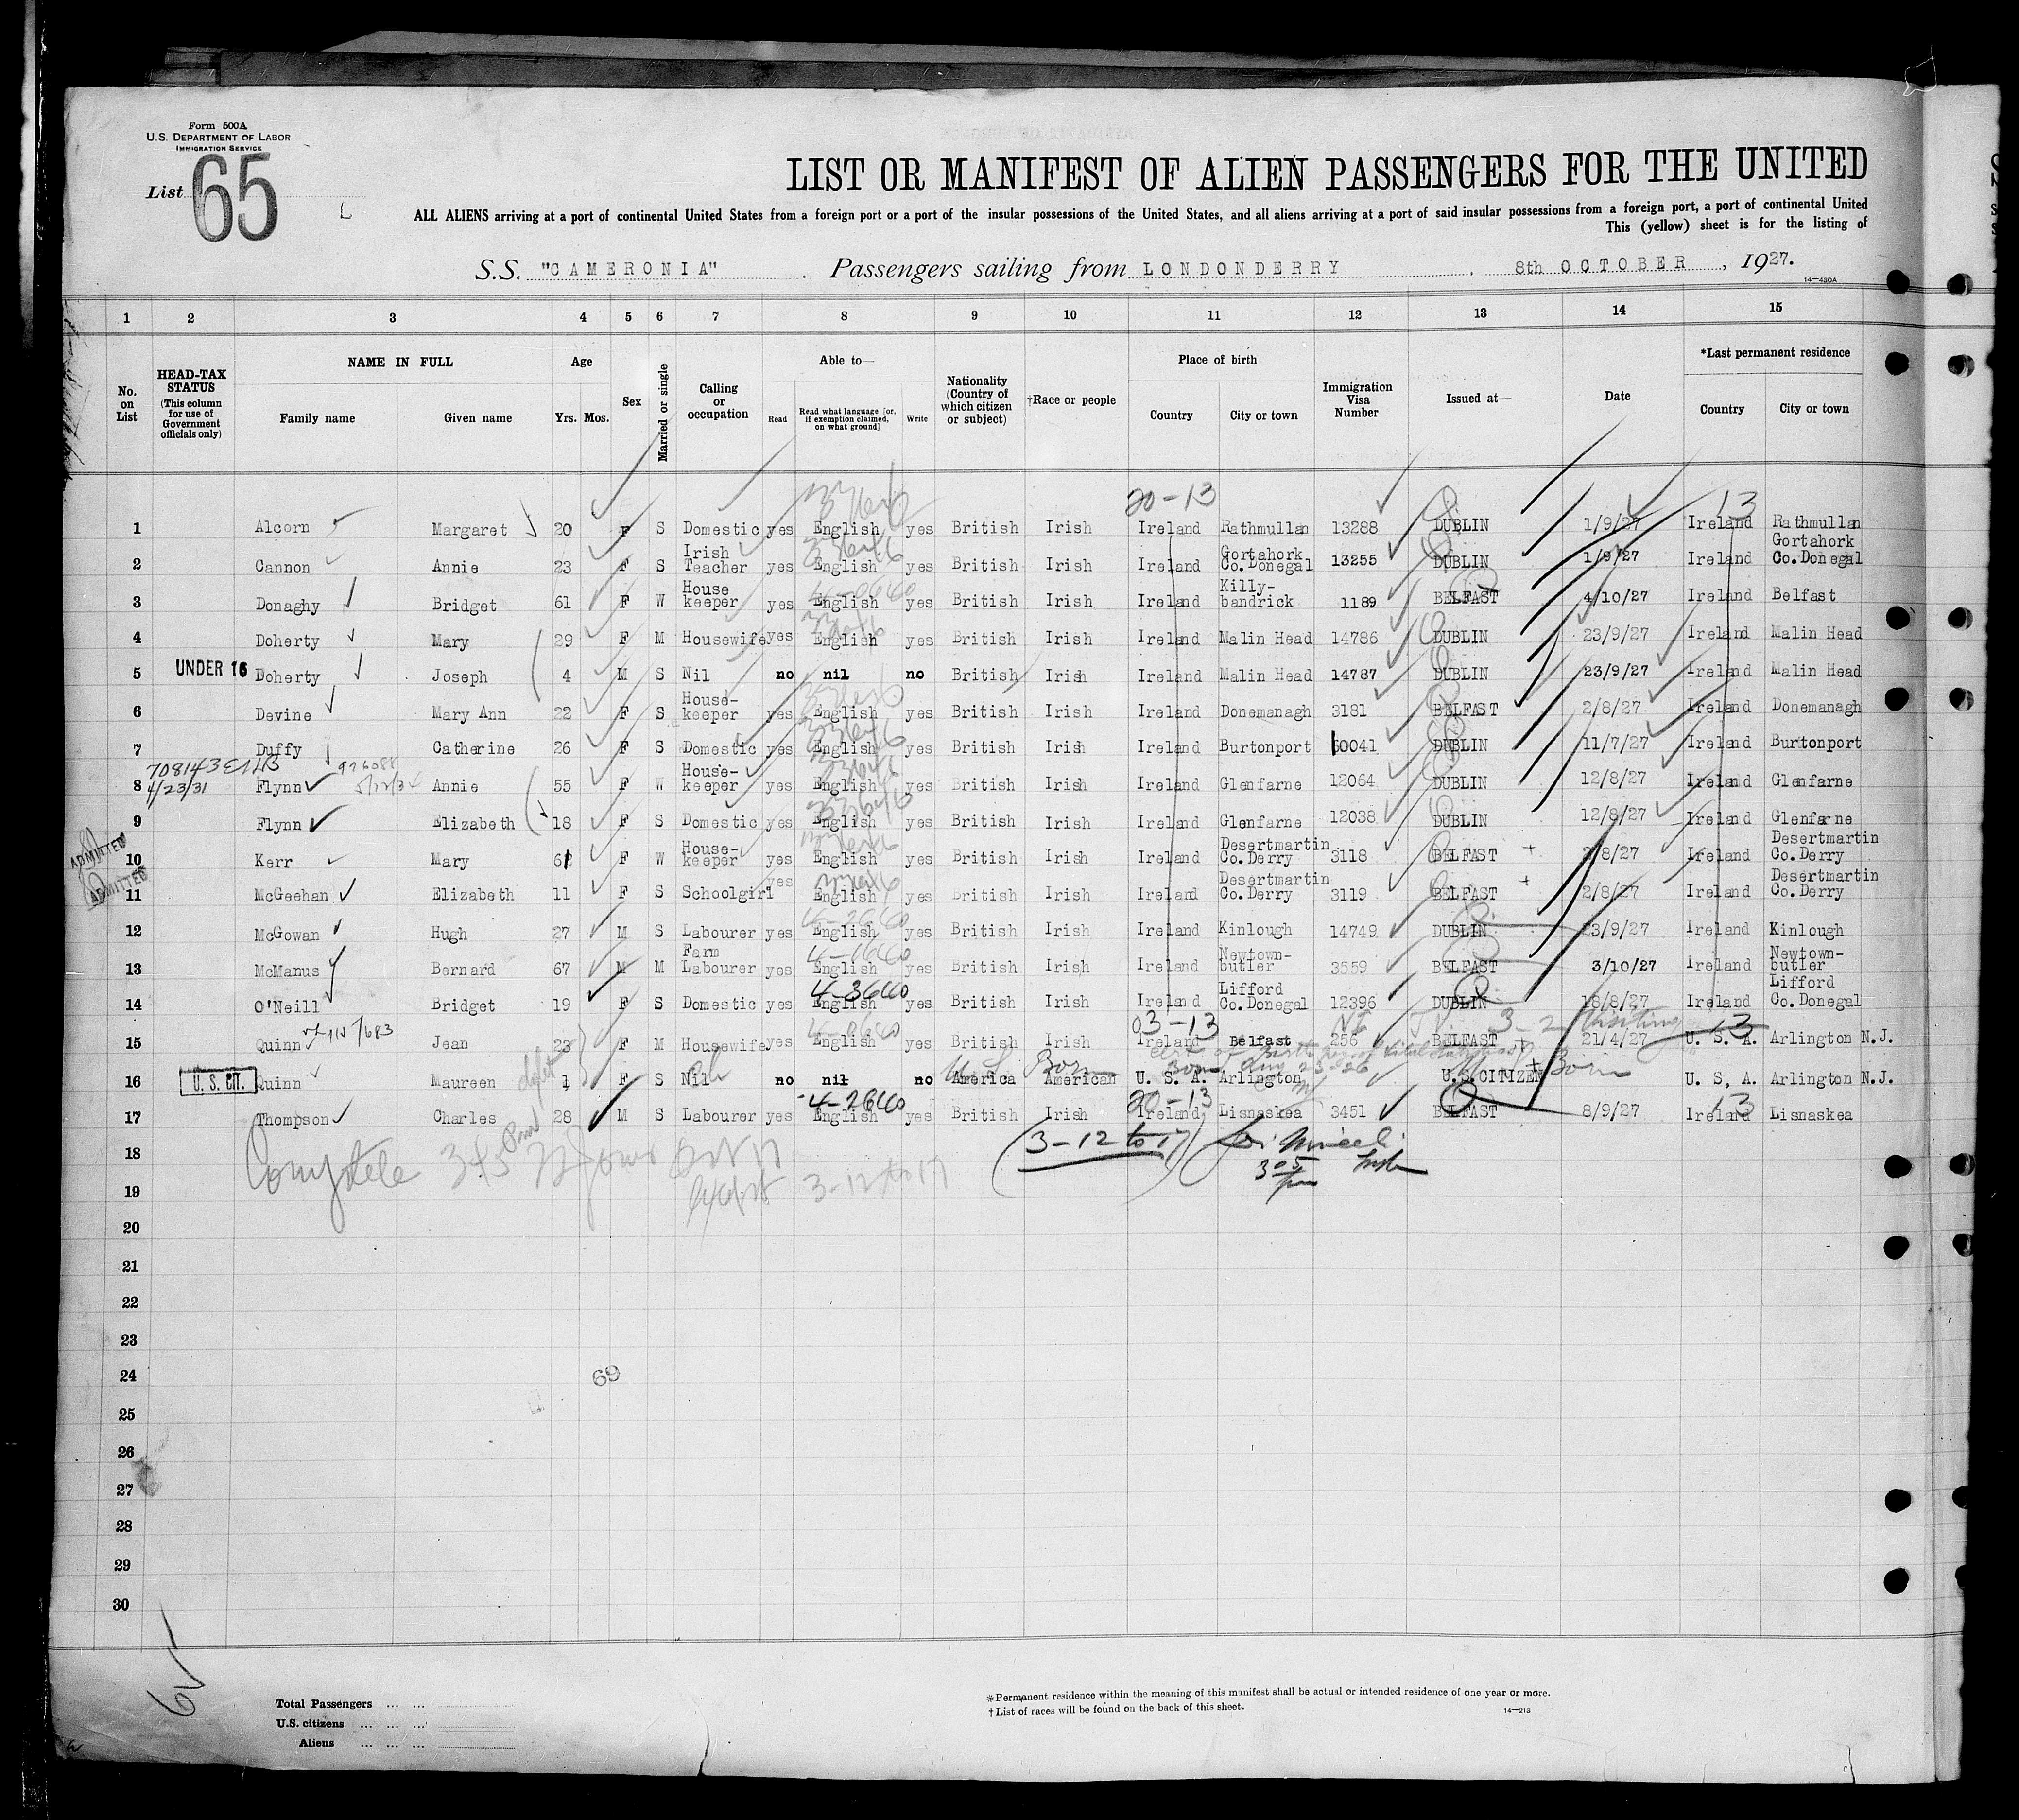 Form 500A
U.S. DEPARTMENT OF LABOR
IMMIGRATION SERVICE
List 65
LIST OR MANIFEST OF ALIEN PASSENGERS FOR THE UNITED
ALL ALIENS arriving at a port of continental United States from a foreign port or a port of the insular possessions of the United States, and all aliens arriving at a port of said insular possessions from a foreign port, a port of continental United
This (yellow) sheet is for the listing of
S.S. "CAMERONIA" Passengers sailing from LONDONDERRY, 8th OCTOBER, 1927.
14—430A
1 2 3 4 5 6 7 8 9 10 11 12 13 14 15
No. on List
HEAD-TAX STATUS (This column for use of Government officials only)
NAME IN FULL
Family name Given name
Age
Yrs. Mos.
Sex
Married or single
Calling or occupation
Able to—
Read Read what language [or, if exemption claimed, on what ground] Write
Nationality (Country of which citizen or subject)
†Race or people
Place of birth
Country City or town
Immigration Visa Number
Issued at—
Date
*Last permanent residence
Country City or town
20-13 13
1 Alcorn Margaret 20 F S Domestic yes English yes British Irish Ireland Rathmullan 13288 DUBLIN 1/9/27 Ireland Rathmullan
2 Cannon Annie 23 F S Irish Teacher yes English yes British Irish Ireland Gortahork Co.Donegal 13255 DUBLIN 1/9/27 Ireland Gortahork Co.Donegal
3 Donaghy Bridget 61 F W House keeper yes English yes British Irish Ireland Killy-bandrick 1189 BELFAST 4/10/27 Ireland Belfast
4 Doherty Mary 29 F M Housewife yes English yes British Irish Ireland Malin Head 14786 DUBLIN 23/9/27 Ireland Malin Head
5 UNDER 16 Doherty Joseph 4 M S Nil no nil no British Irish Ireland Malin Head 14787 DUBLIN 23/9/27 Ireland Malin Head
6 Devine Mary Ann 22 F S House-keeper yes English yes British Irish Ireland Donemanagh 3181 BELFAST 2/8/27 Ireland Donemanagh
7 Duffy Catherine 26 F S Domestic yes English yes British Irish Ireland Burtonport 10041 DUBLIN 11/7/27 Ireland Burtonport
708143
8 4/23/31 Flynn Annie 55 F W House-keeper yes English yes British Irish Ireland Glenfarne 12064 DUBLIN 12/8/27 Ireland Glenfarne
9 Flynn Elizabeth 18 F S Domestic yes English yes British Irish Ireland Glenfarne 12038 DUBLIN 12/8/27 Ireland Glenfarne
ADMITTED
10 Kerr Mary 61 F W House-keeper yes English yes British Irish Ireland Desertmartin Co.Derry 3118 BELFAST 2/8/27 Ireland Desertmartin Co.Derry
ADMITTED
11 McGeehan Elizabeth 11 F S Schoolgirl yes English yes British Irish Ireland Desertmartin Co.Derry 3119 BELFAST 2/8/27 Ireland Desertmartin Co.Derry
12 McGowan Hugh 27 M S Labourer yes English yes British Irish Ireland Kinlough 14749 DUBLIN 23/9/27 Ireland Kinlough
13 McManus Bernard 67 M M Farm Labourer yes English yes British Irish Ireland Newtown-butler 3559 BELFAST 3/10/27 Ireland Newtown-butler
4-3640
14 O'Neill Bridget 19 F S Domestic yes English yes British Irish Ireland Lifford Co.Donegal 12396 DUBLIN 18/8/27 Ireland Lifford Co.Donegal
03-13 NI 3-2 Visiting 13
15 Quinn Jean 23 F M Housewife yes English yes British Irish Ireland Belfast 256 BELFAST 21/4/27 U. S. A. Arlington N.J.
Born Aug 23 - 26
16 U. S. CIT. Quinn Maureen 1 F S Nil no nil no America American U. S. A. Arlington U.S.CITIZEN Born U. S, A. Arlington N.J.
4-2640 20-13 13
17 Thompson Charles 28 M S Labourer yes English yes British Irish Ireland Lisnaskea 3451 BELFAST 8/9/27 Ireland Lisnaskea
18 Complete 345 (3-12 to 17)
19 except 3-12 to 17 305 pm
20
21
22
23
24 69
25
26
27
28
29
30
Total Passengers ... ...
U.S. citizens ... ... ...
Aliens ... ... ...
*Permanent residence within the meaning of this manifest shall be actual or intended residence of one year or more.
†List of races will be found on the back of this sheet.
14—213